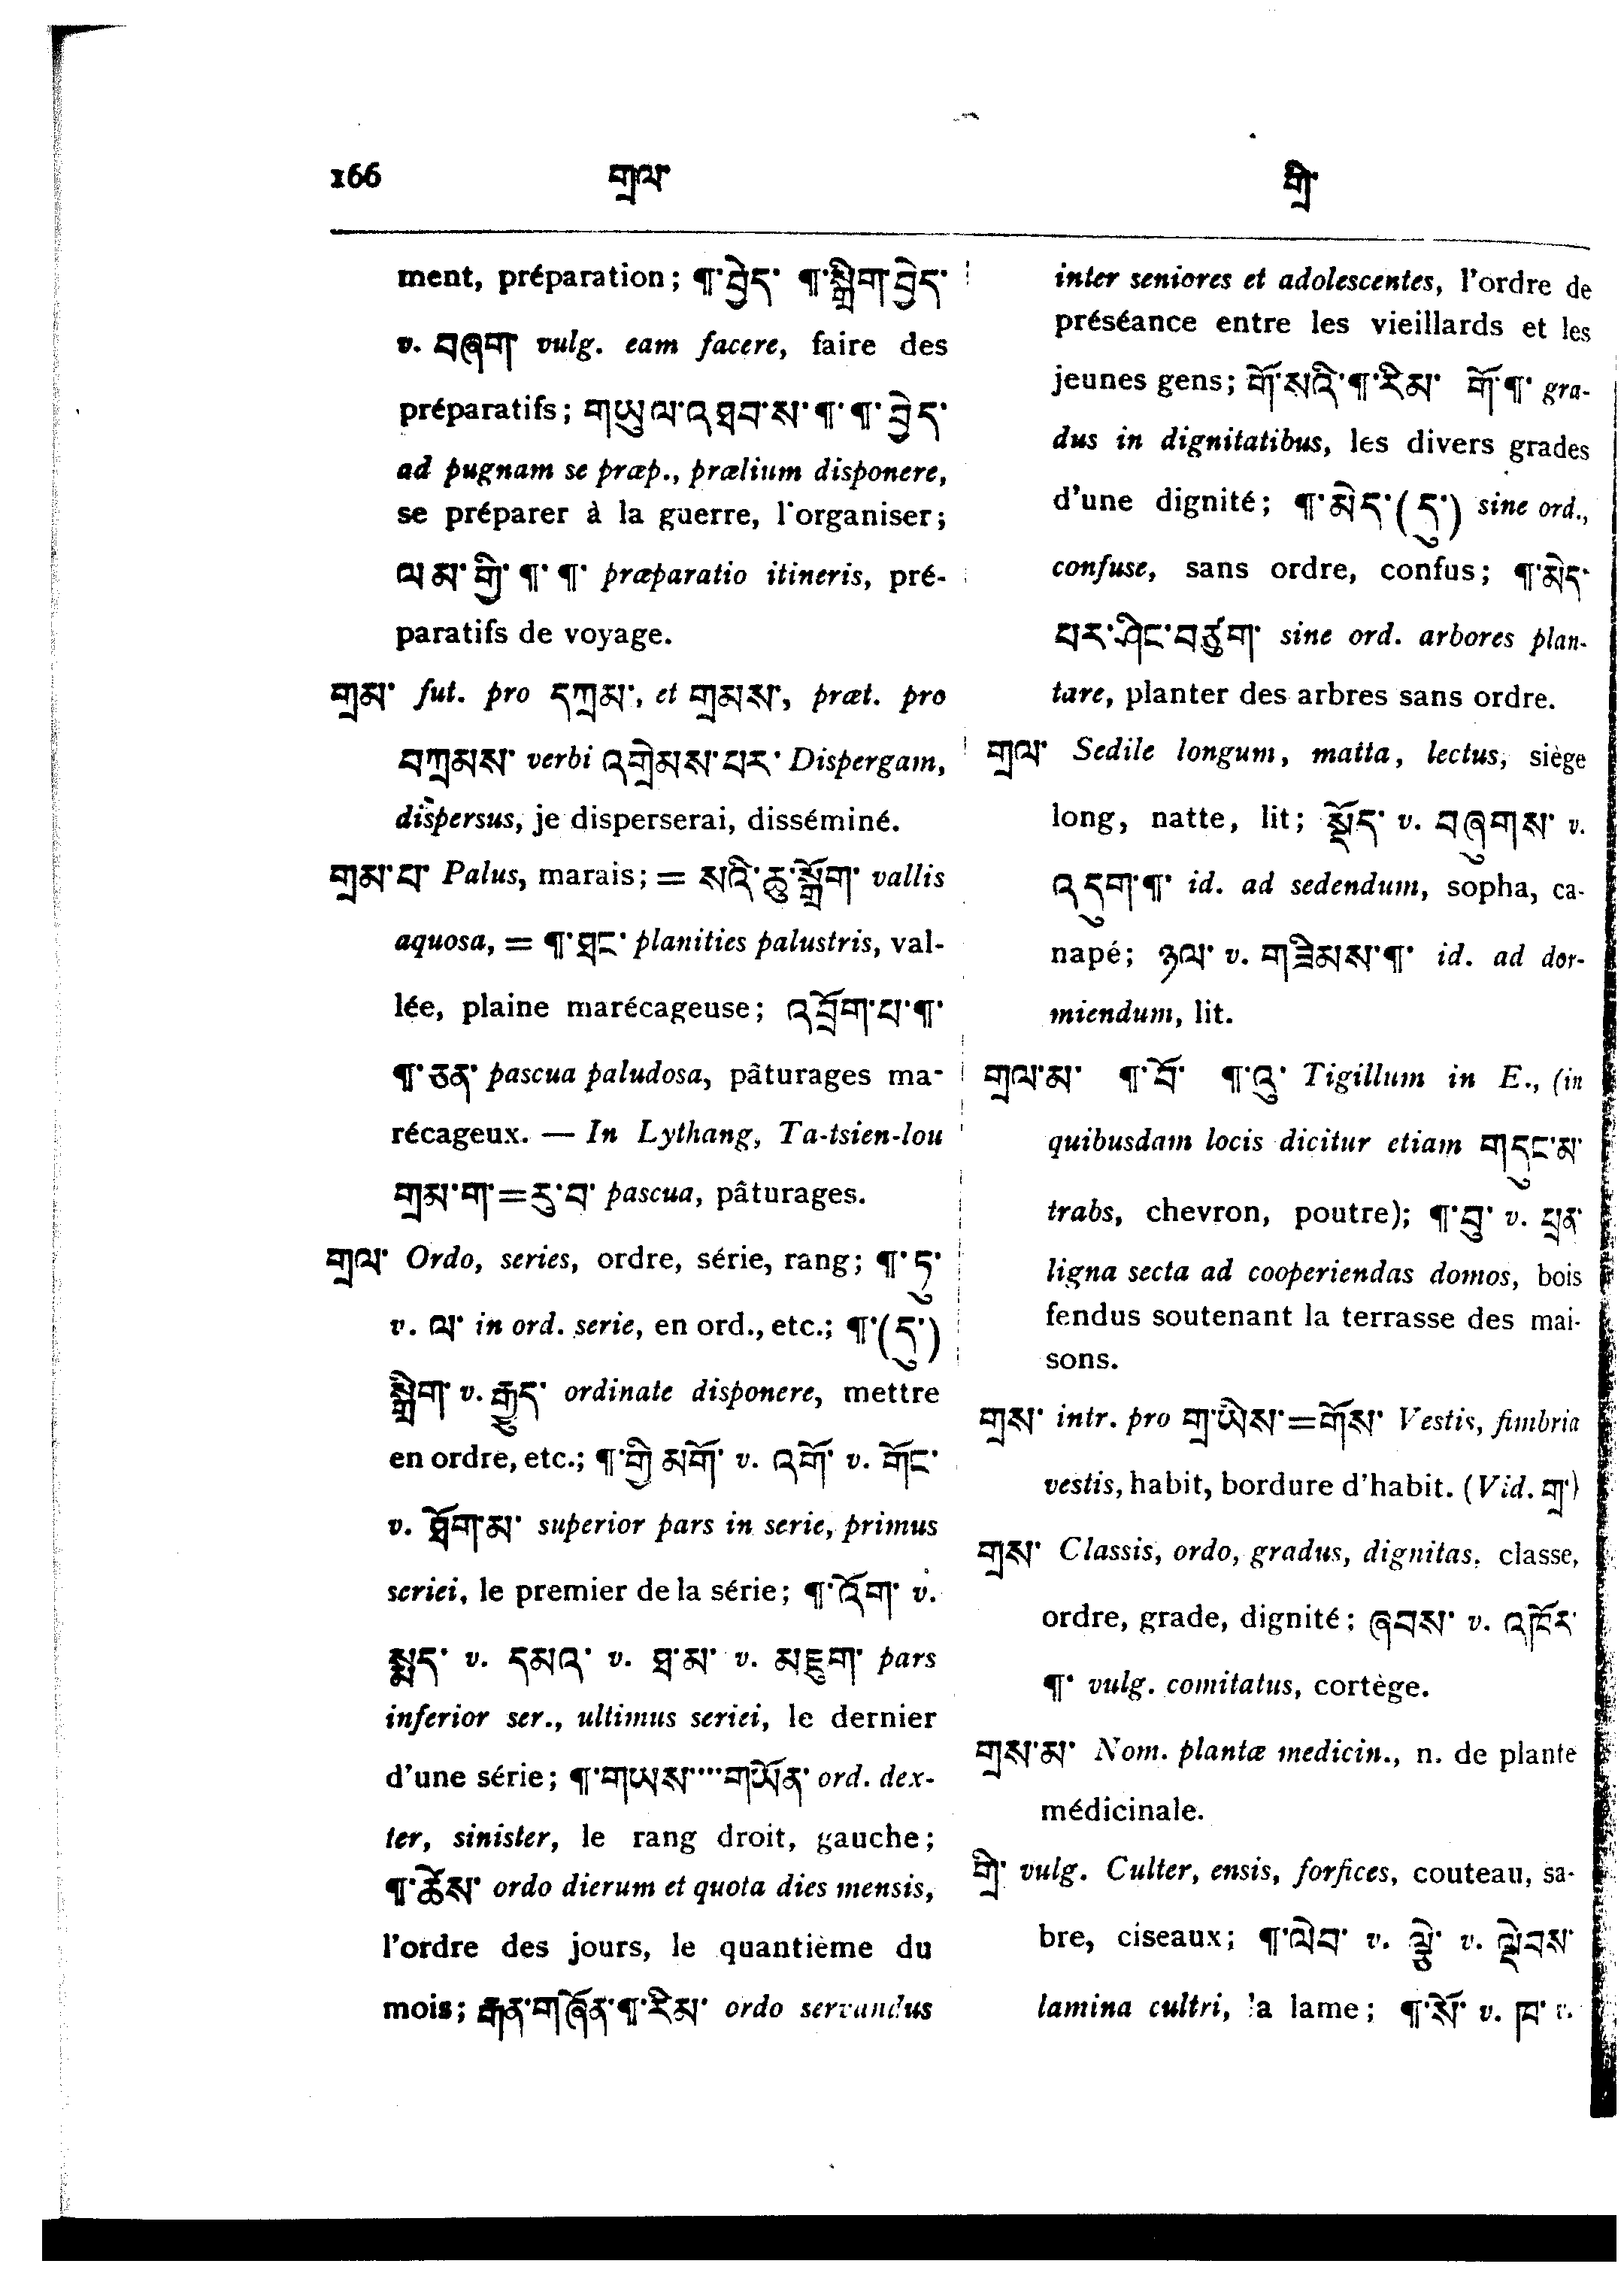 166 གྲལ་ གྲི་
ment, préparation; ¶་བྱེད་ ¶་སྒྲིག་བྱེད་
v. བཞག་ vulg. eam facere, faire des
préparatifs; གཡུལ་འཐབ་ས་¶་¶་བྱེད་
ad pugnam se præp., prælium disponere,
se préparer à la guerre, l'organiser;
ལམ་གྱི་¶་¶་ præparatio itineris, pré-
paratifs de voyage.
གྲམ་ fut. pro དཀྲམ་, et གྲམས་, præt. pro
བཀྲམས་ verbi འགྲེམས་པར་ Dispergam,
dispersus, je disperserai, disséminé.
གྲམ་པ་ Palus, marais; = སའི་རྫུ་སྒྲོག་ vallis
aquosa, = ¶་ཐང་ planities palustris, val-
lée, plaine marécageuse; འབྲོག་པ་¶་
¶་ཅན་ pascua paludosa, pâturages ma-
récageux. — In Lythang, Ta-tsien-lou
གྲམ་ག་=རུ་བ་ pascua, pâturages.
གྲལ་ Ordo, series, ordre, série, rang; ¶་ཏུ་
v. ལ་ in ord. serie, en ord., etc.; ¶་(དུ་)
སྒྲིག་ v. རྒྱུད་ ordinate disponere, mettre
en ordre, etc.; ¶་གྱི་མགོ་ v. འགོ་ v. གོང་
v. ཐོག་མ་ superior pars in serie, primus
seriei, le premier de la série; ¶་འོག་ v.
སྨད་ v. དམའ་ v. ཐ་མ་ v. མཇུག་ pars
inferior ser., ultimus seriei, le dernier
d'une série; ¶་གཡས་་་་་གཡོན་ ord. dex-
ter, sinister, le rang droit, gauche;
¶་ཚེས་ ordo dierum et quota dies mensis,
l'ordre des jours, le quantième du
mois; རྒན་གཞོན་¶་རིམ་ ordo servandus
inter seniores et adolescentes, l'ordre de
préséance entre les vieillards et les
jeunes gens; གོ་སའི་¶་རིམ་ གོ་¶་ gra-
dus in dignitatibus, les divers grades
d'une dignité; ¶་མེད་(དུ་) sine ord.,
confuse, sans ordre, confus; ¶་མེད་
པར་ཤིང་བཙུག་ sine ord. arbores plan-
tare, planter des arbres sans ordre.
གྲལ་ Sedile longum, matta, lectus, siège
long, natte, lit; སྡོད་ v. བཞུགས་ v.
འདུག་¶་ id. ad sedendum, sopha, ca-
napé; ཉལ་ v. གཟིམས་¶་ id. ad dor-
miendum, lit.
གྲལ་མ་ ¶་བོ་ ¶་འུ་ Tigillum in E., (in
quibusdam locis dicitur etiam གདུང་མ་
trabs, chevron, poutre); ¶་བུ་ v. ཕྲན་
ligna secta ad cooperiendas domos, bois
fendus soutenant la terrasse des mai-
sons.
གྲས་ intr. pro གྲ་ཡིས་=གོས་ Vestis, fimbria
vestis, habit, bordure d'habit. (Vid. གྲ་)
གྲས་ Classis, ordo, gradus, dignitas, classe,
ordre, grade, dignité; ཞབས་ v. འཁོར་
¶་ vulg. comitatus, cortège.
གྲས་མ་ Nom. plantæ medicin., n. de plante
médicinale.
གྲི་ vulg. Culter, ensis, forfices, couteau, sa-
bre, ciseaux; ¶་ལེབ་ v. ལྕེ་ v. ལྡེབས་
lamina cultri, la lame; ¶་སོ་ v. ཁ་ v.